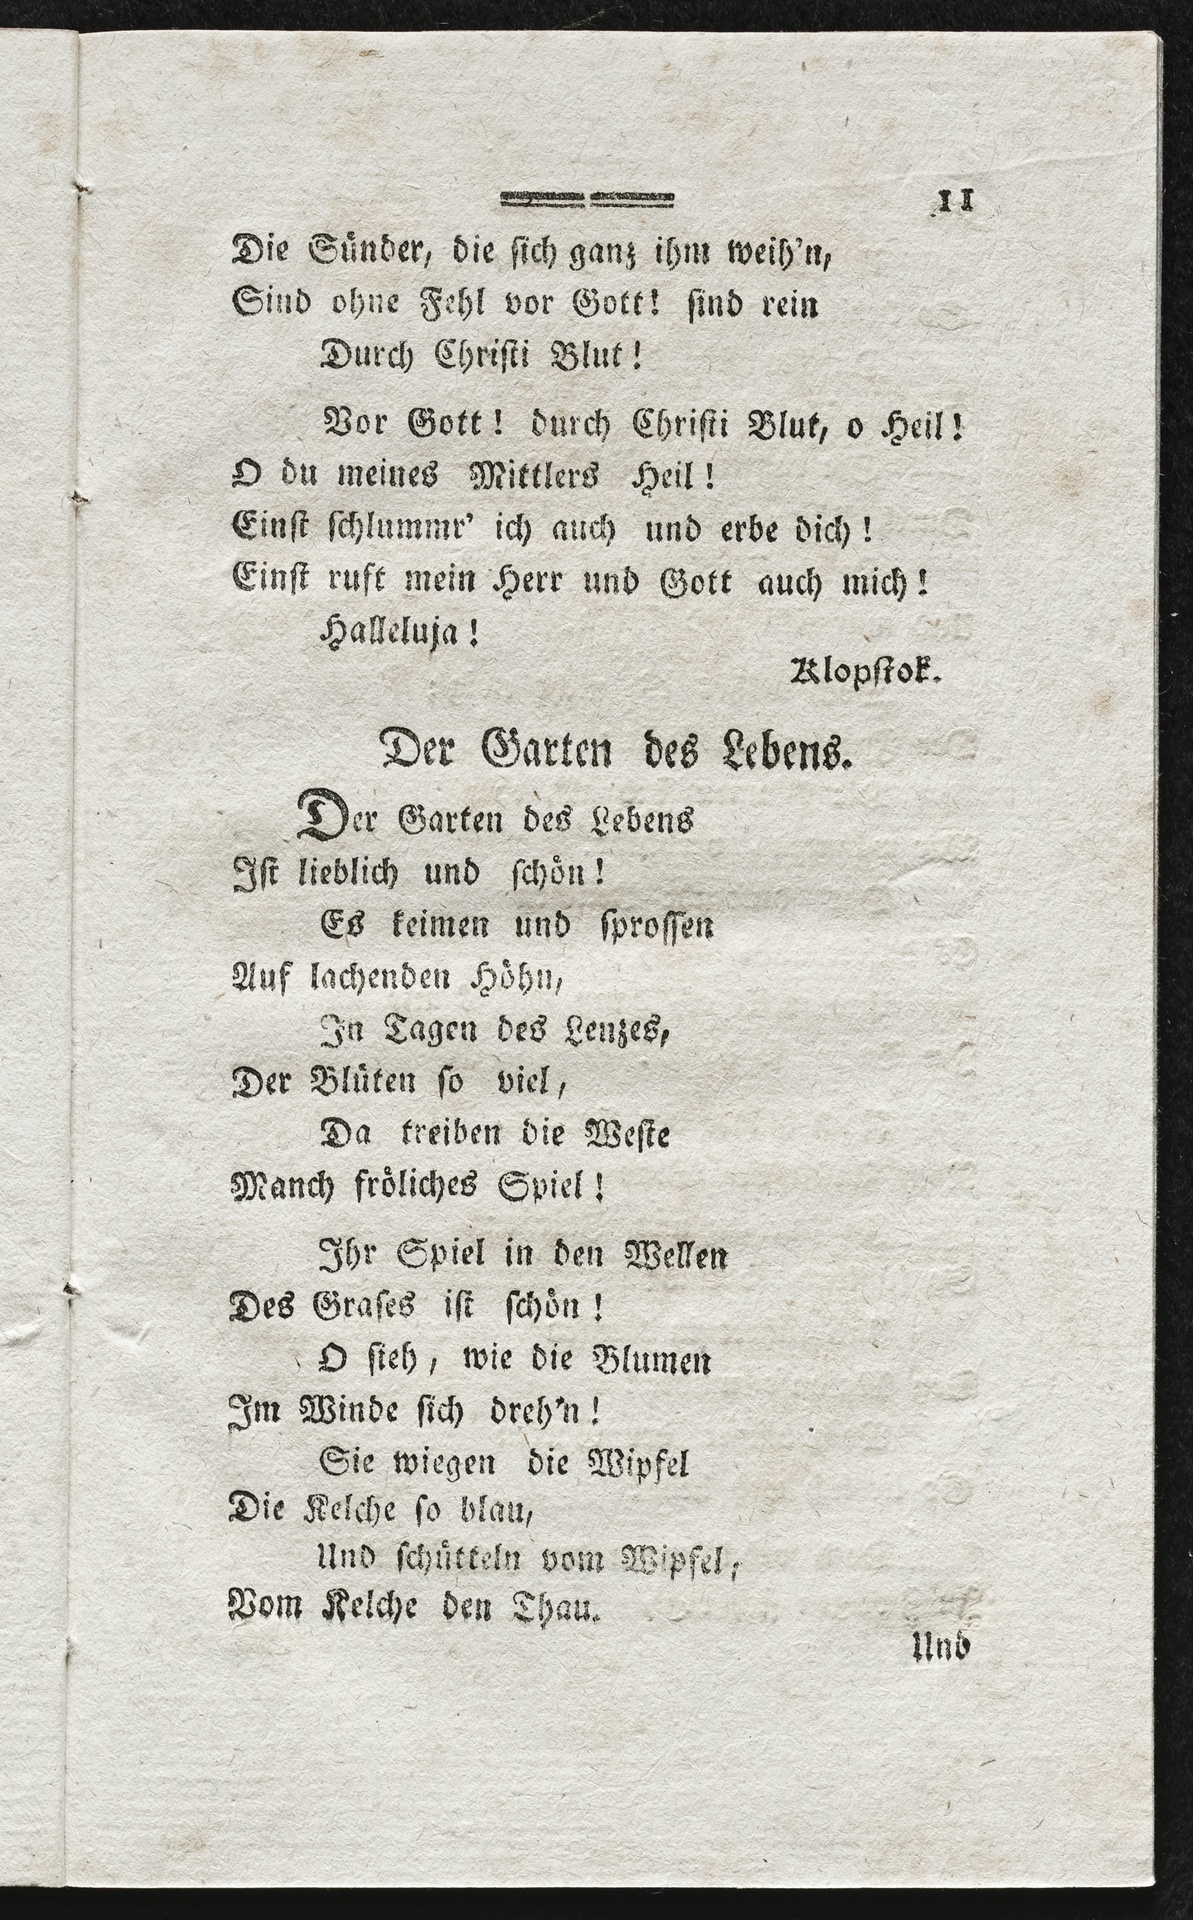 11
Die Sünder, die ſich ganz ihm weih'n,
Sind ohne Fehl vor Gott! ſind rein
Durch Chriſti Blut!
Vor Gott! durch Chriſti Blut, o Heil!
O du meines Mittlers Heil!
Einſt ſchlummr' ich auch und erbe dich!
Einſt ruft mein Herr und Gott auch mich!
Halleluja!
Klopſtok.
Der Garten des Lebens.
Der Garten des Lebens
Iſt lieblich und ſchön!
Es keimen und ſproſſen
Auf lachenden Höhn,
In Tagen des Lenzes,
Der Blüten ſo viel,
Da treiben die Weſte
Manch fröliches Spiel!
Ihr Spiel in den Wellen
Des Graſes iſt ſchön!
O ſieh, wie die Blumen
Im Winde ſich dreh'n!
Sie wiegen die Wipfel
Die Kelche ſo blau,
Und ſchütteln vom Wipfel,
Vom Kelche den Thau.
Und